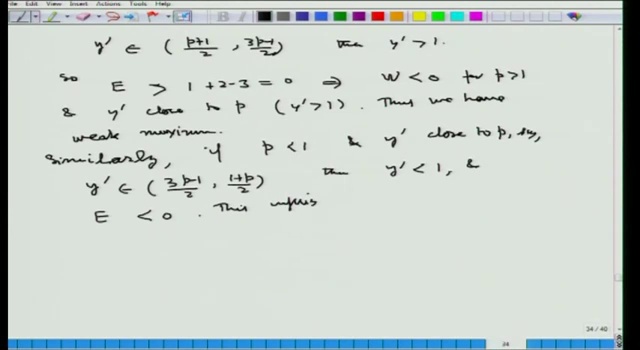 File Edit View Insert Actions Tools Help
y' ∈ ( p+1/2 , 3p-1/2 ) then y' > 1.
so E > 1 + 2 - 3 = 0 ⇒ W < 0 for p > 1
& y' close to p ( y' > 1 ) . Thus we have
weak maximum.
Similarly, if p < 1 & y' close to p, say,
y' ∈ ( 3p-1/2 , 1+p/2 ) then y' < 1, &
E < 0 . This implies
34 / 40
34